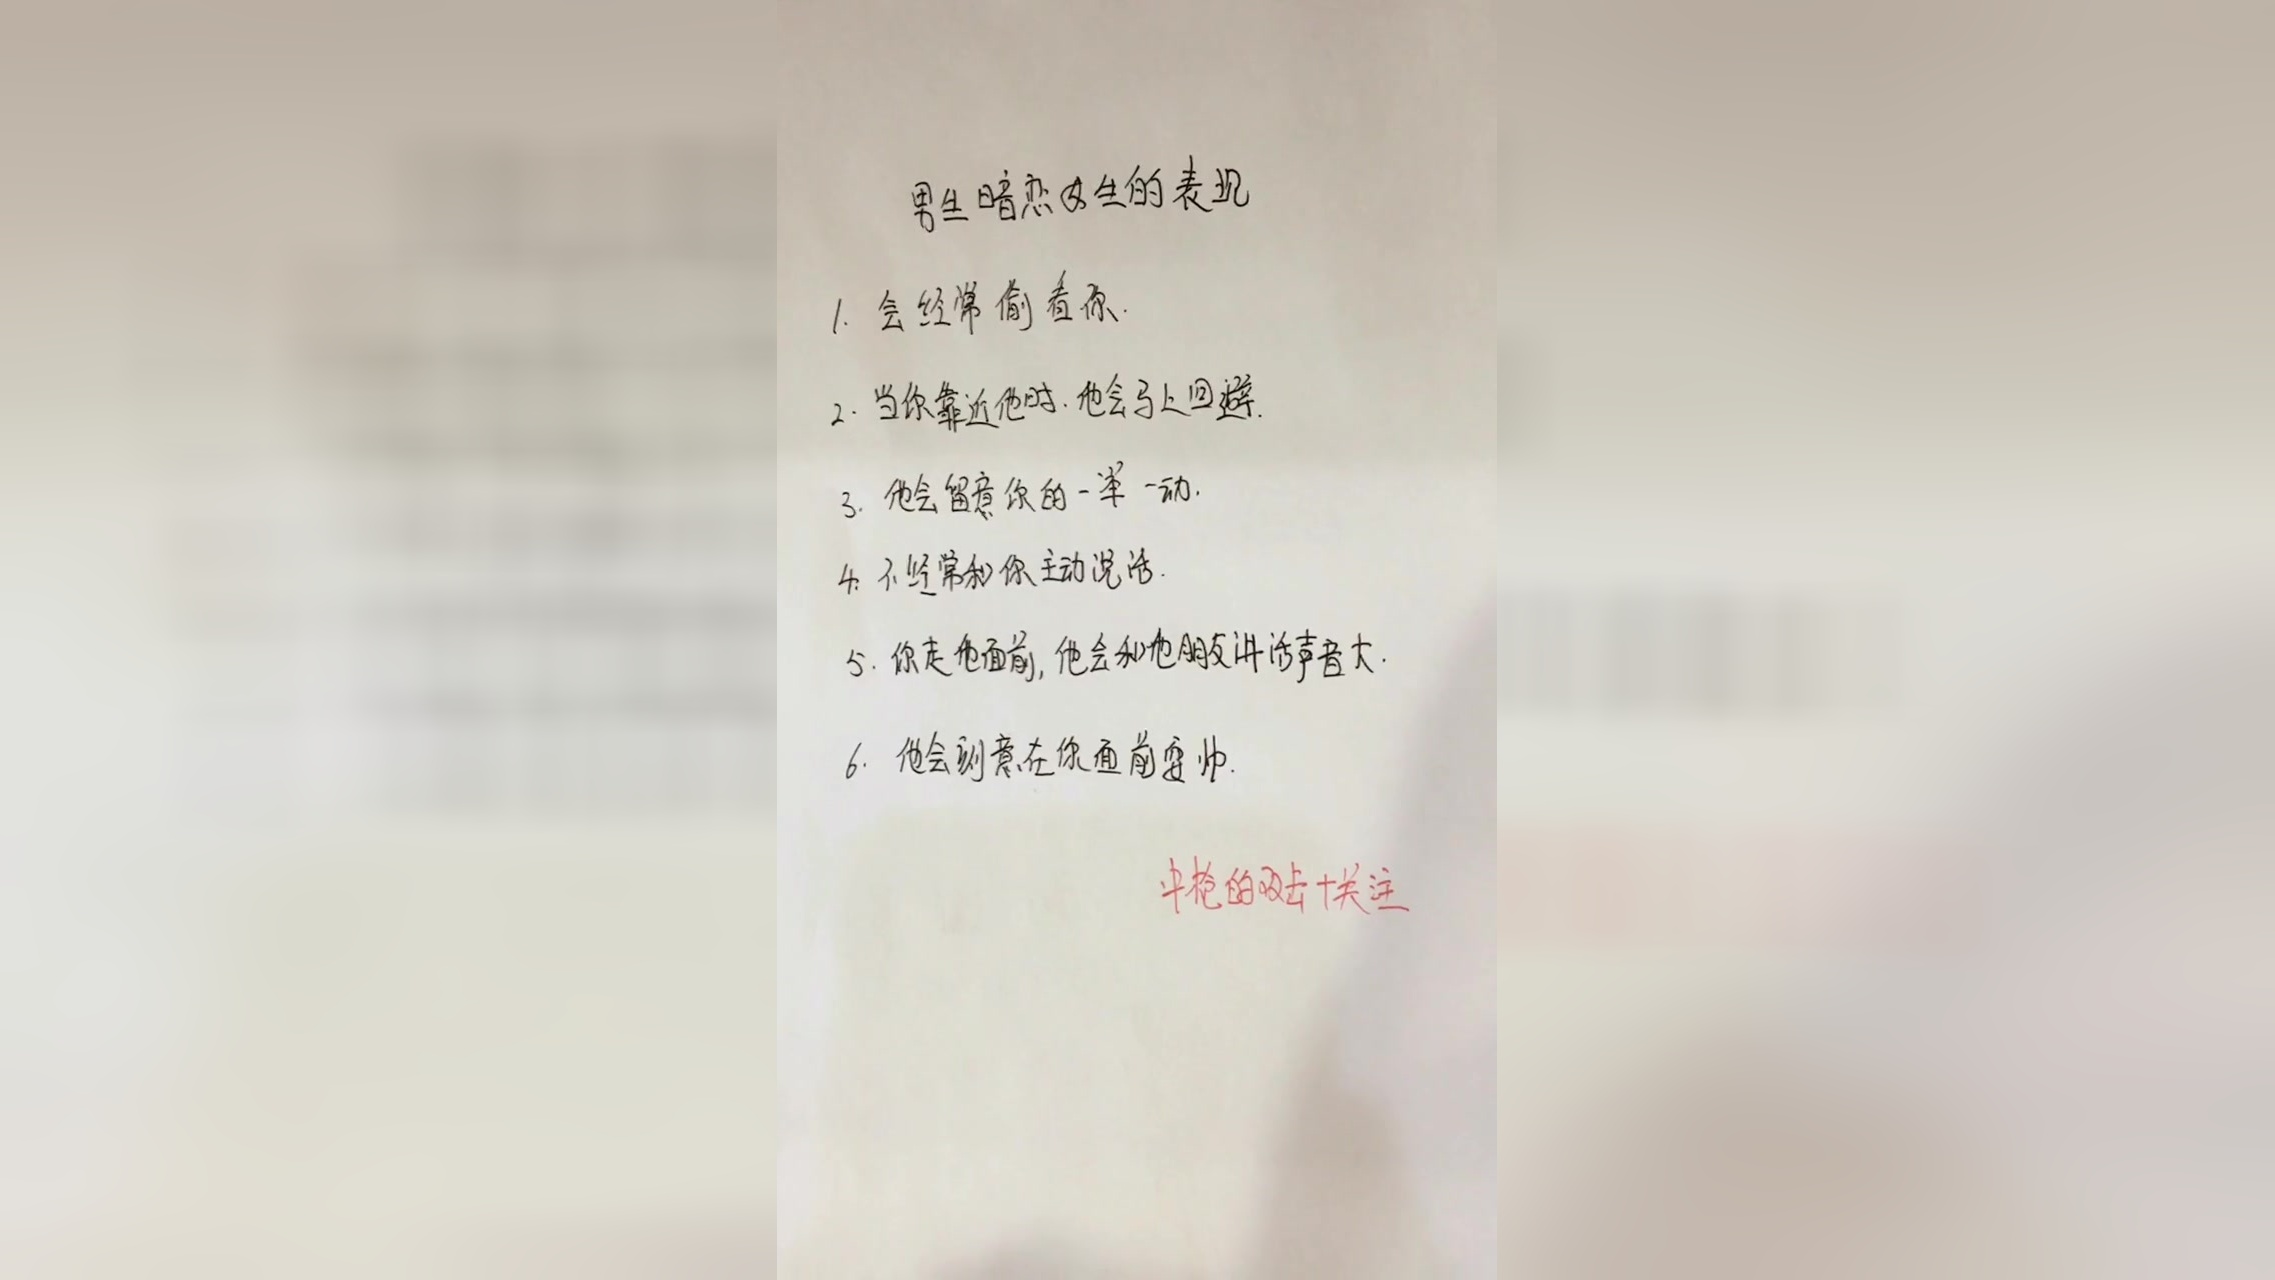 男生暗恋女生的表现
1. 会经常偷看你.
2. 当你靠近他时.他会马上回避.
3. 他会留意你的一举一动.
4. 不经常和你主动说话.
5. 你走他面前,他会和他朋友讲话声音大.
6. 他会刻意在你面前耍帅.
中枪的双击+关注